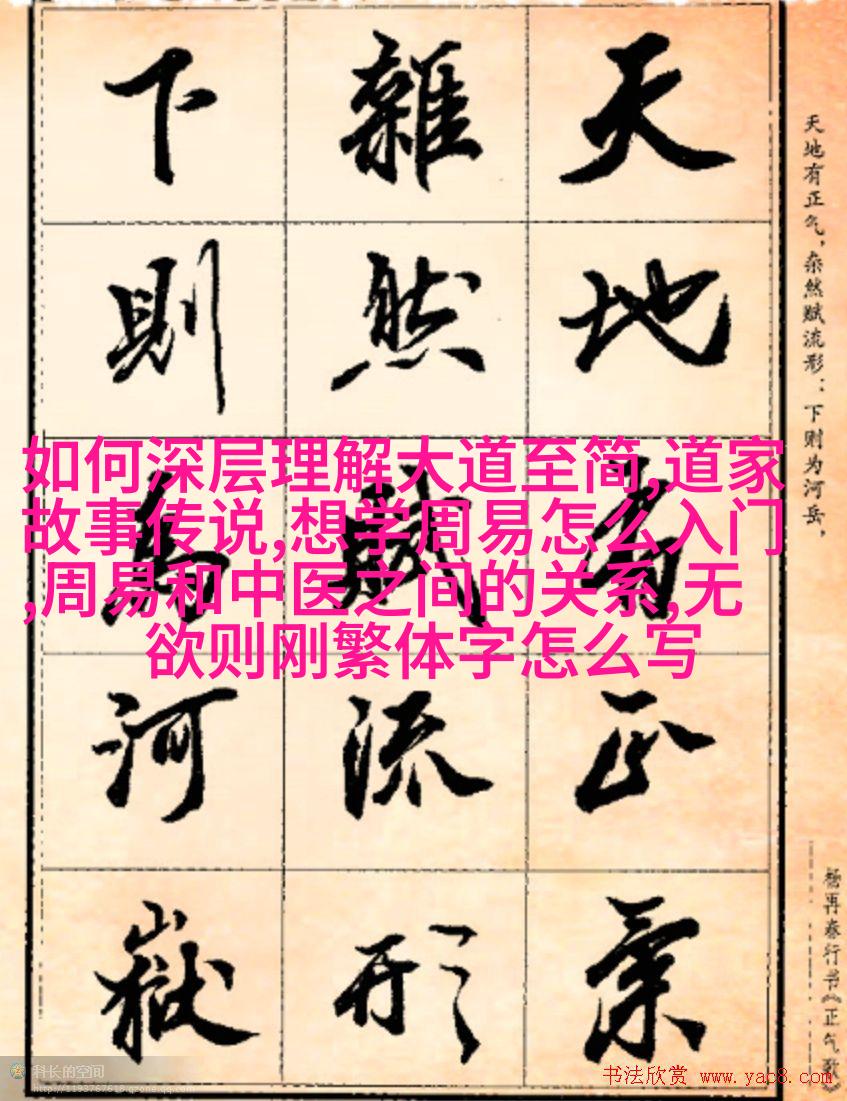 天地有正氣
雜然賦流形
下則為河嶽
天地有正气，杂然赋流形；下则为河岳，
杨再春行书《正气歌》
如何深层理解大道至简,道家
故事传说,想学周易怎么入门
,周易和中医之间的关系,无
欲则刚繁体字怎么写
科长的空间
http://1193767618.qzone.qq.com
书法欣赏 www.yac8.com